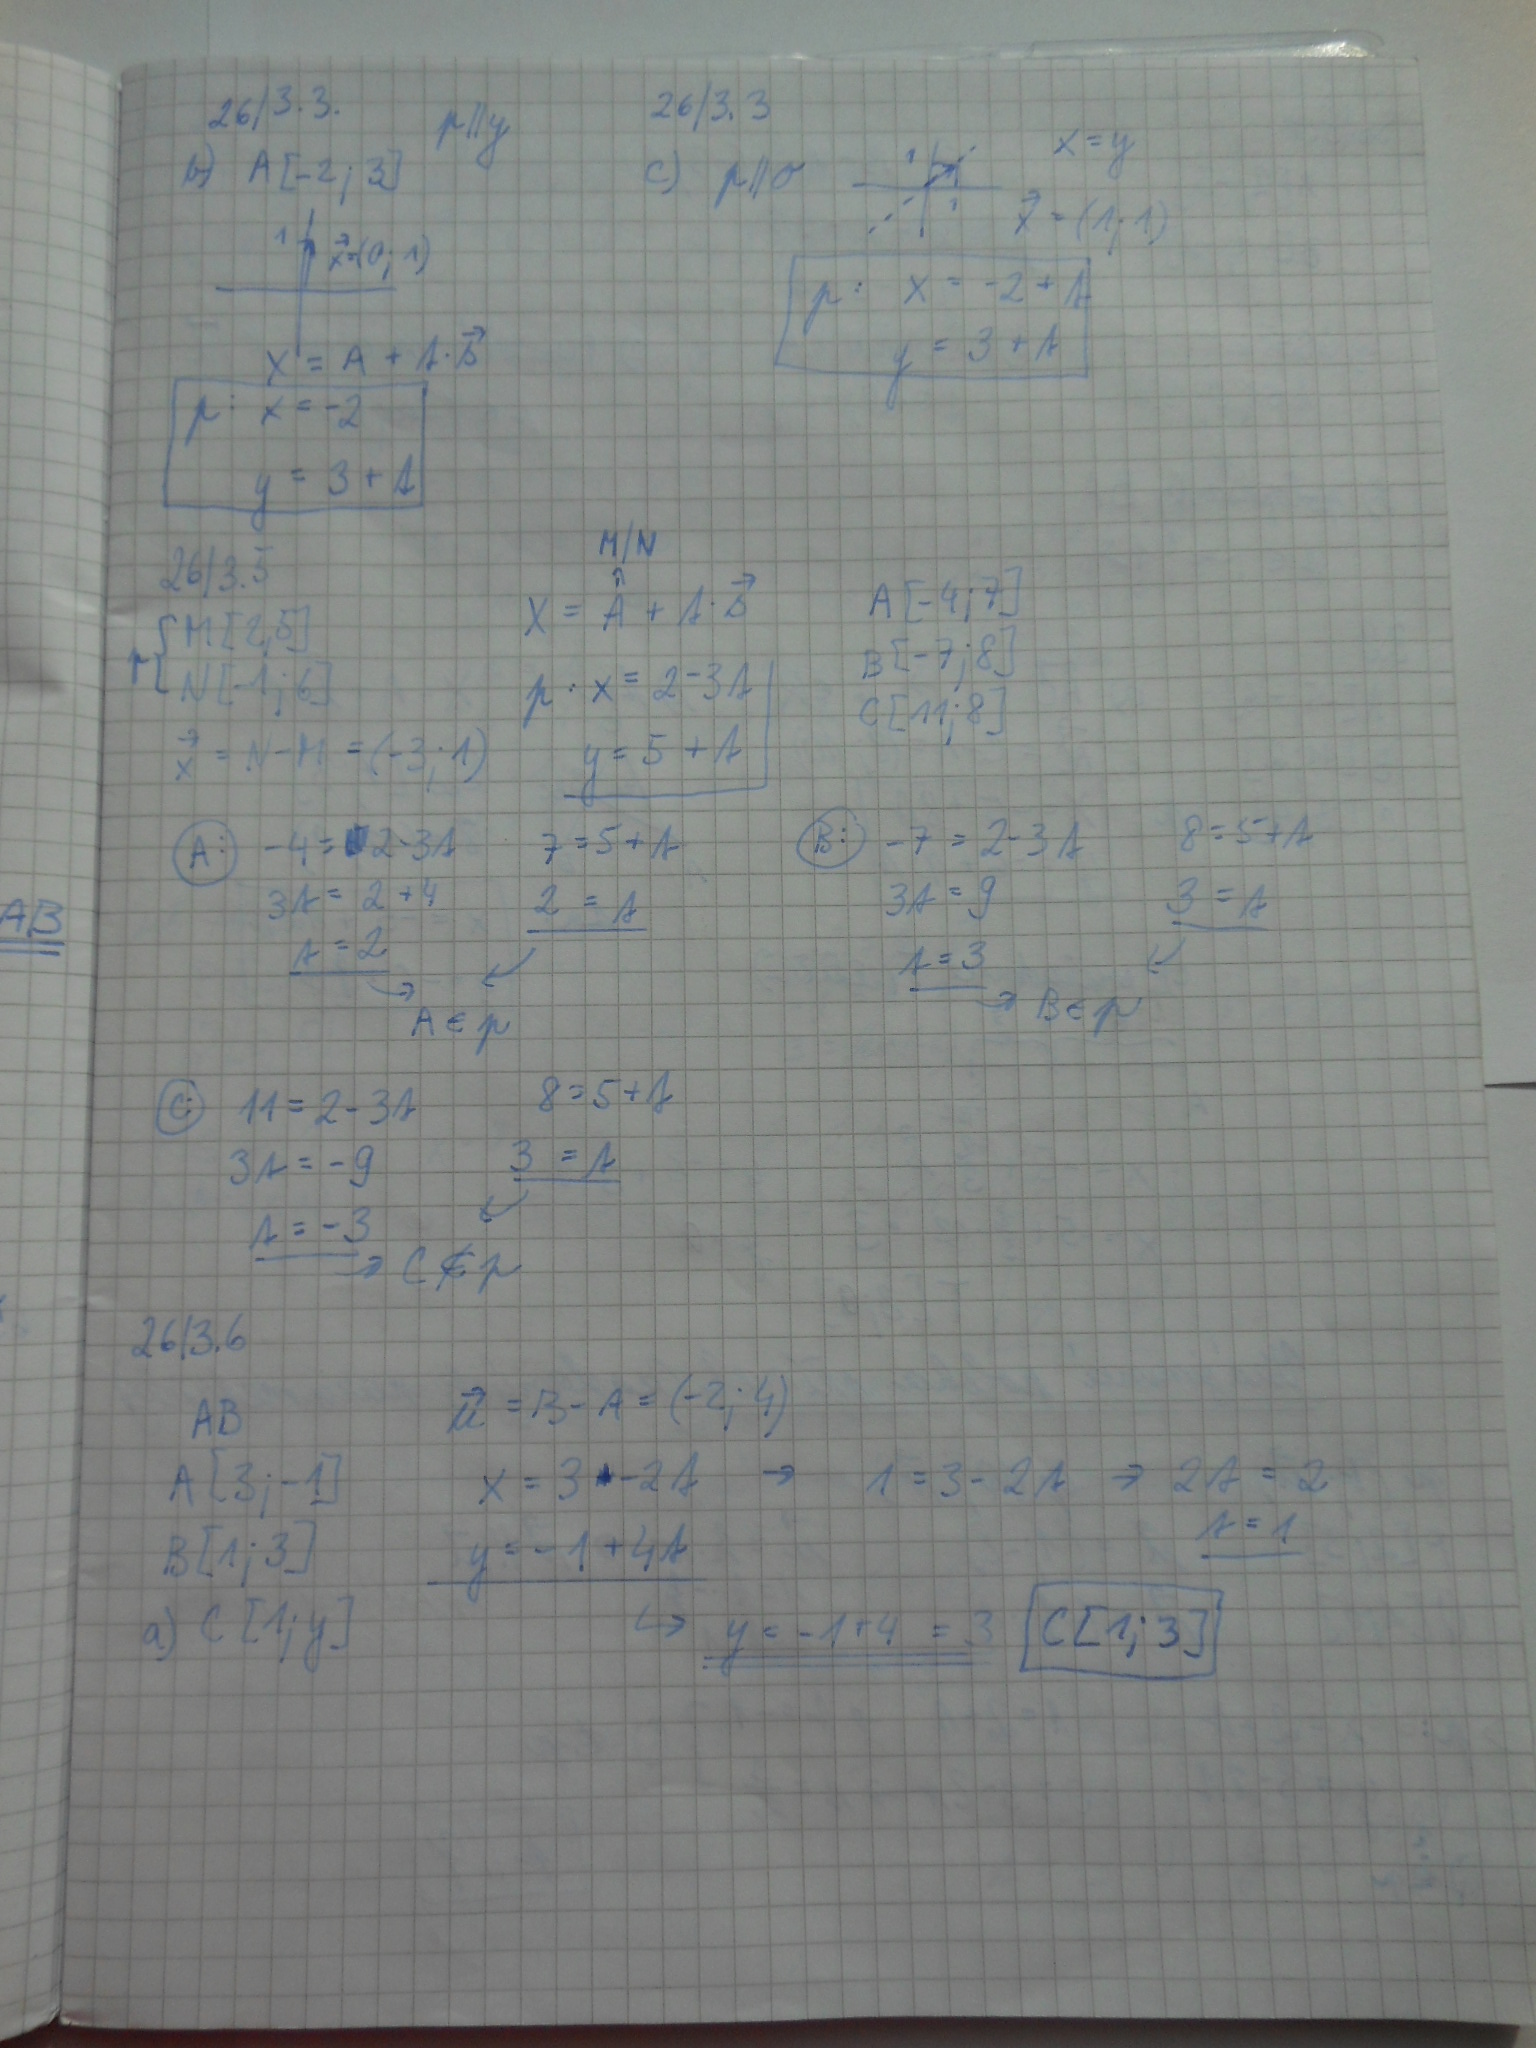 AB
26/3.3.
p||y
b) A[-2; 3]
1
x⃗=(0; 1)
X = A + t·s⃗
p: x = -2
y = 3 + t
26/3.3
c) p||σ
1
1
x = y
x⃗ = (1; 1)
p: x = -2 + t
y = 3 + t
26/3.5
M[2; 5]
p
N[-1; 6]
x⃗ = N - M = (-3; 1)
M/N
X = A + t·s⃗
p: x = 2 - 3t
y = 5 + t
A[-4; 7]
B[-7; 8]
C[11; 8]
A: -4 = 2 - 3t 7 = 5 + t
3t = 2 + 4 2 = t
t = 2
A ∈ p
B: -7 = 2 - 3t 8 = 5 + t
3t = 9 3 = t
t = 3
B ∈ p
C: 11 = 2 - 3t 8 = 5 + t
3t = -9 3 = t
t = -3
C ∉ p
26/3.6
AB u⃗ = B - A = (-2; 4)
A[3; -1] x = 3 - 2t → 1 = 3 - 2t → 2t = 2
t = 1
B[1; 3] y = -1 + 4t
a) C[1; y] ↳ y = -1 + 4 = 3 C[1; 3]